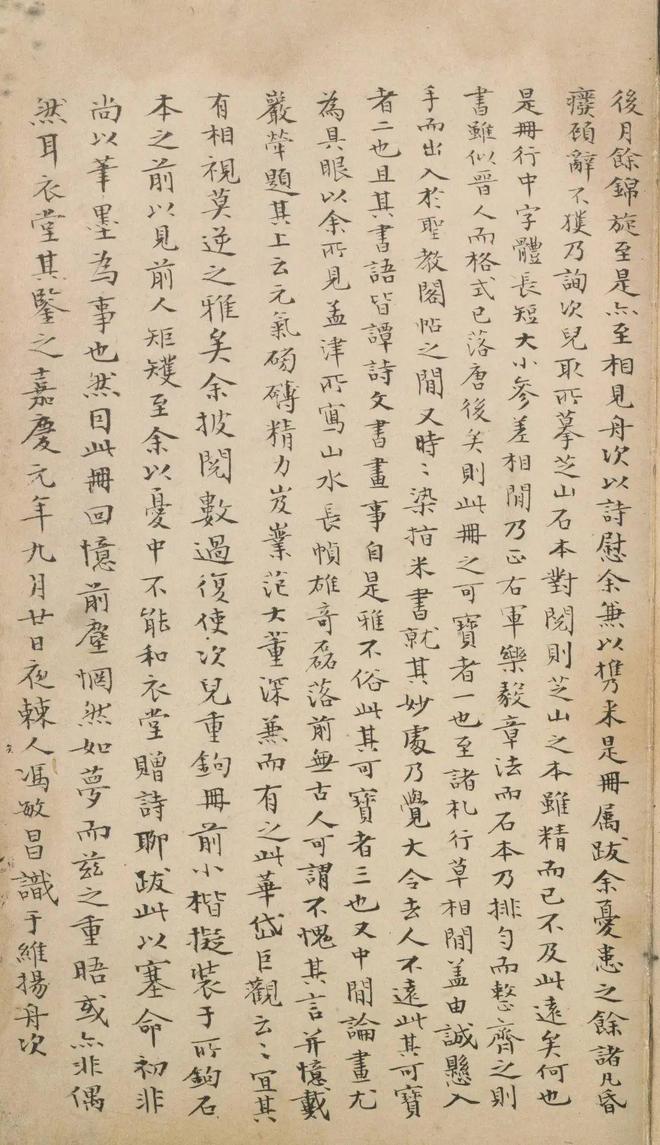 後月餘錦旋至是亦至相見舟次以詩慰余兼以攜来是冊属跋余憂患之餘諸凡昏
癈頎辭不獲乃詢次兒取所摹芝山石本對閱則芝山之本雖精而已不及此遠矣何也
是冊行中字體長短大小參差相間乃正右軍樂毅章法而石本乃排匀而整齊之則
書雖似晉人而格式已落唐後矣則此冊之可寶者一也至諸札行草相間盖由誠懸入
手而出入於聖教閣帖之間又時〻染指米書就其妙處乃覺大令去人不遠此其可寶
者二也且其書語皆譚詩文書畫事自是雅不俗此其可寶者三也又中間論畫尤
為具眼以余所見孟津所寫山水長幀雄竒磊落前無古人可謂不愧其言并憶戴
巖犖題其上云元氣磅礴精力岌嶪范大董深兼而有之此華岱巨觀云〻宜其
有相視莫逆之雅矣余披閱數過復使次兒重鉤冊前小楷擬裝于所鉤石
本之前以見前人矩矱至余以憂中不能和衣堂贈詩聊跋此以塞命初非
尚以筆墨為事也然因此冊回憶前塵惘然如夢而兹之重晤或亦非偶
然耳衣堂其鑒之嘉慶元年九月廿日夜棘人馮敏昌識于維揚舟次